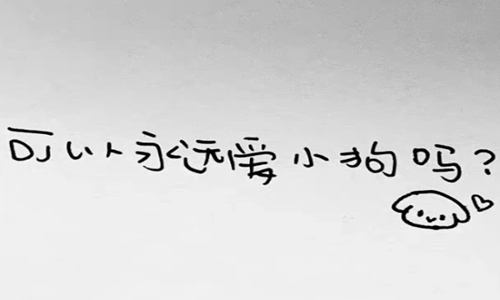 可以永远爱小狗吗？